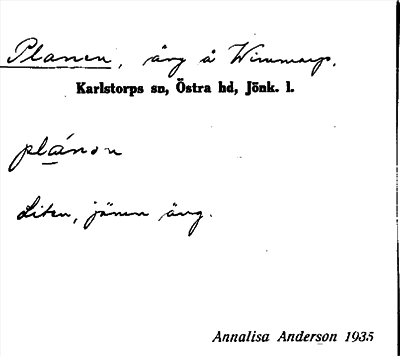 Planen, äng å Wimmarp.
Karlstorps sn, Östra hd, Jönk. l.
plánən
Liten, jämn äng.
Annalisa Anderson 1935